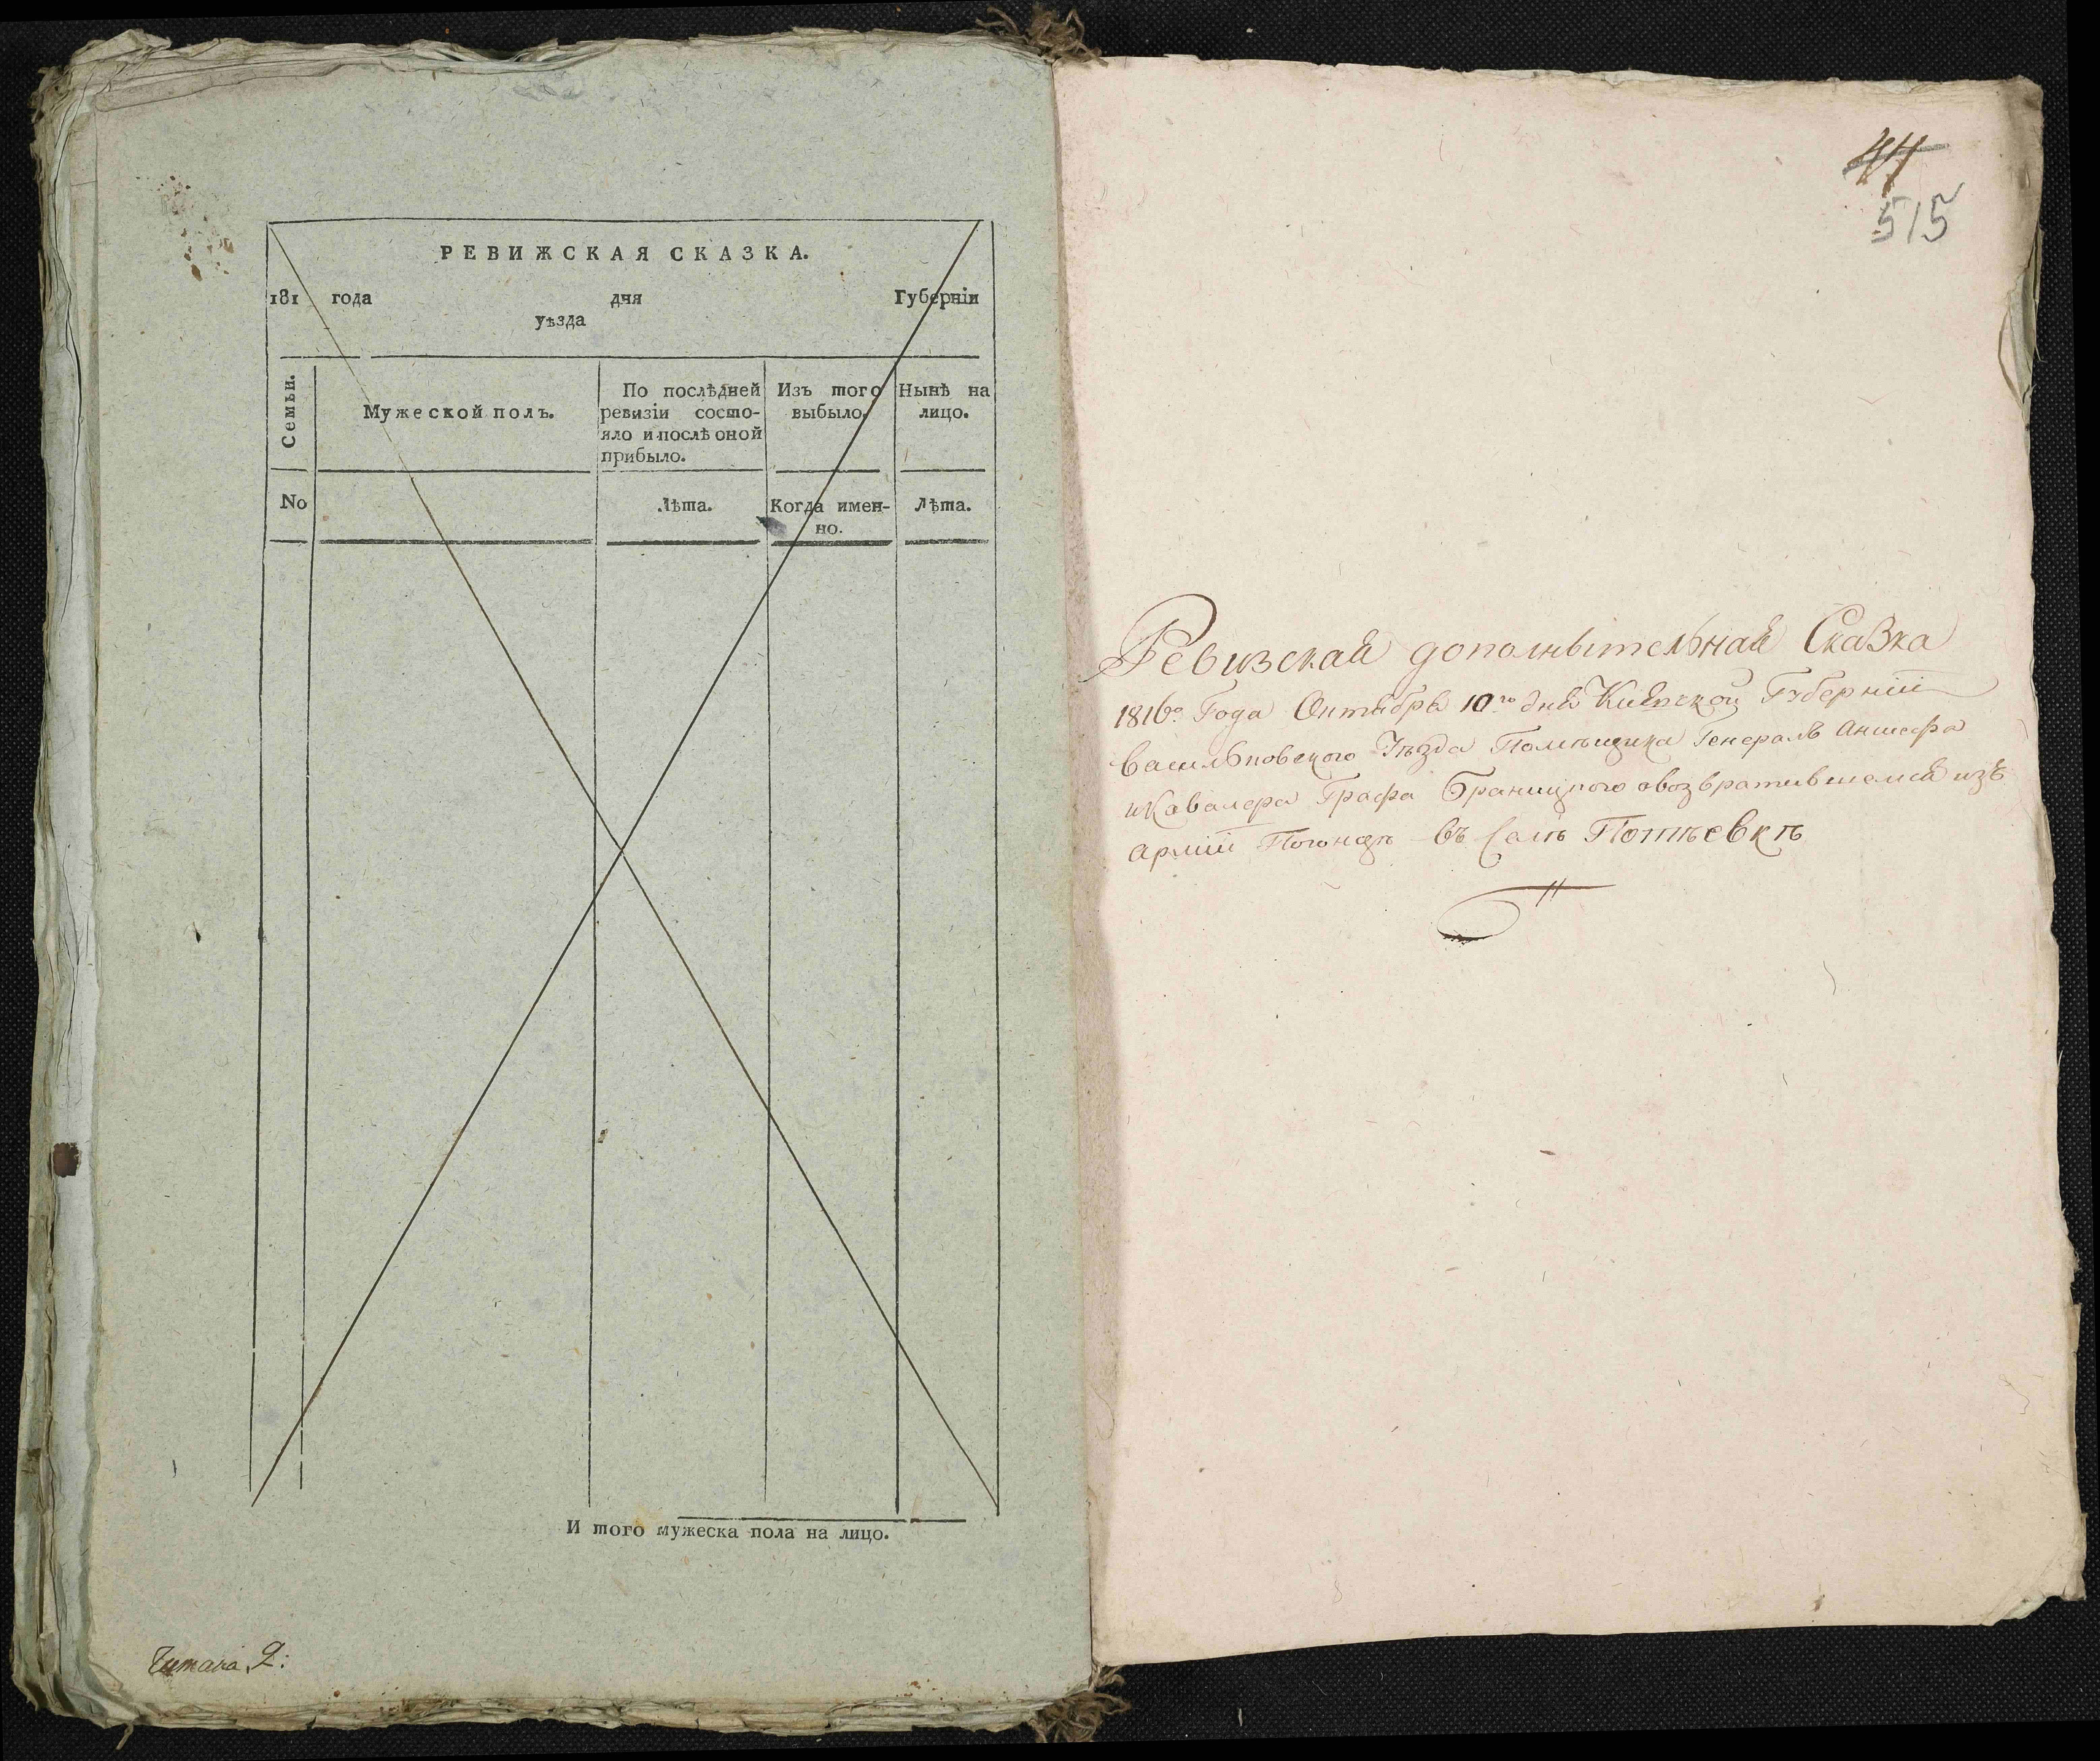 РЕВИЖСКАЯ СКАЗКА.
181 года дня Губернїи
уѣзда
Семьи.
Мужеской полъ.
По послѣдней
ревизїи состо-
яло и послѣ оной
прибыло.
Изъ того
выбыло.
Нынѣ на
лицо.
No
Лѣта.
Когда имен-
но.
Лѣта.
И того мужеска пола на лицо.
44
515
Ревизская дополнытельная Сказка
1816го Года Октября 10го дня Кіевской Губерніи
Васильковского Уѣзда Помѣщика Генералъ Аншефа
и Кавалера Графа Браницкого овозвратившемся изъ
арміи Погонцѣ въ Селѣ Потіевкѣ